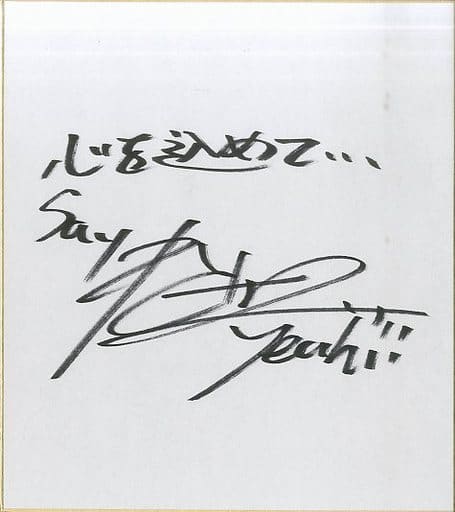 心を込めて...
Say
Yeah!!!